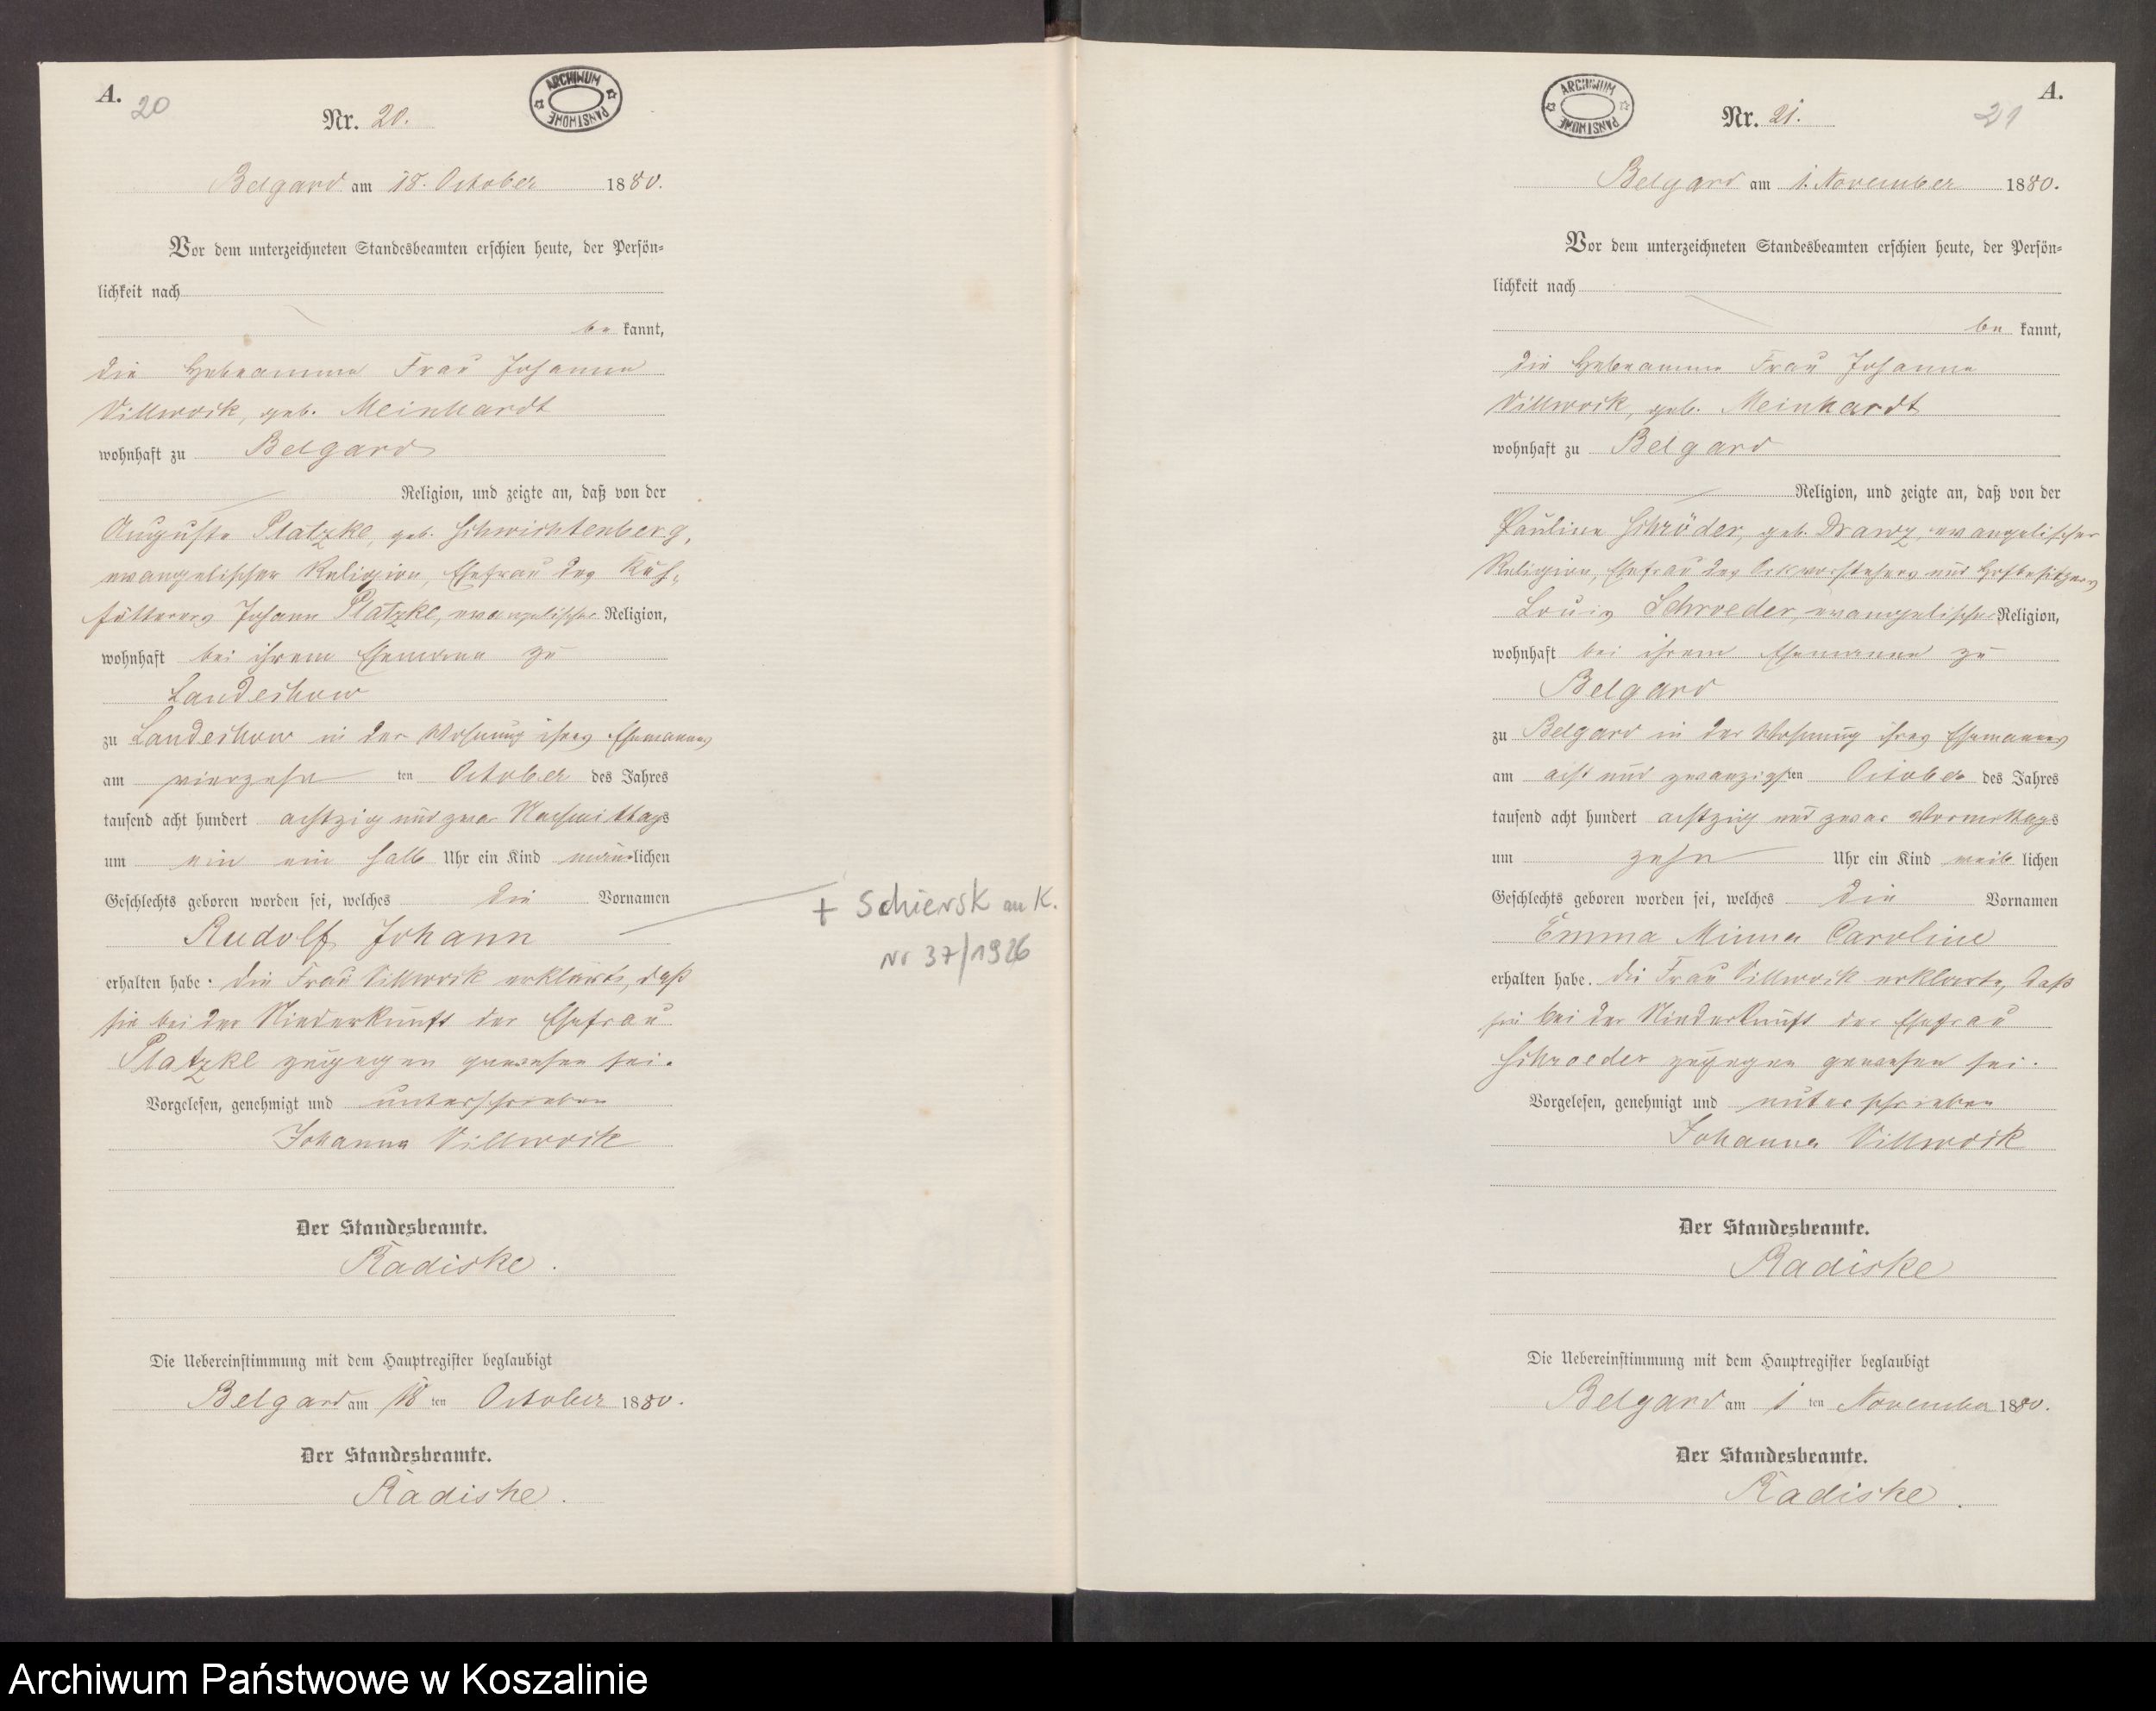 A.
20
Nr. 20.
ARCHIWUM PAŃSTWOWE
Belgard am 18. October 1880.
Vor dem unterzeichneten Standesbeamten erschien heute, der Persön=
lichkeit nach
be kannt,
die Hebeamme Frau Johanna
Villwock, geb. Meinhardt
wohnhaft zu Belgard
Religion, und zeigte an, daß von der
Auguste Platzke, geb. Schwichtenberg,
evangelischer Religion, Ehefrau des Kuh-
fütterers Johann Platzke, evangelischer Religion,
wohnhaft bei ihrem Ehemanne zu
Landechow
zu Landechow in der Wohnung ihres Ehemannes
am vierzehn ten October des Jahres
tausend acht hundert achtzig und zwar Nachmittags
um ein ein halb Uhr ein Kind männlichen
Geschlechts geboren worden sei, welches die Vornamen
Rudolf Johann
erhalten habe. die Frau Villwock erklärte, daß
sie bei der Niederkunft der Ehefrau
Platzke zugegen gewesen sei.
Vorgelesen, genehmigt und unterschrieben
Johanna Villwock
Der Standesbeamte.
Radiske.
Die Uebereinstimmung mit dem Hauptregister beglaubigt
Belgard am 18 ten October 1880.
Der Standesbeamte.
Radiske.
+ Schiersk au K.
Nr 37/1926
A.
21
Nr. 21.
ARCHIWUM PAŃSTWOWE
Belgard am 1. November 1880.
Vor dem unterzeichneten Standesbeamten erschien heute, der Persön=
lichkeit nach
be kannt,
die Hebeamme Frau Johanna
Villwock, geb. Meinhardt
wohnhaft zu Belgard
Religion, und zeigte an, daß von der
Pauline Schröder, geb. Drawz, evangelischer
Religion, Ehefrau des Ortsvorstehers und Hofbesitzers
Louis Schroeder, evangelischer Religion,
wohnhaft bei ihrem Ehemanne zu
Belgard
zu Belgard in der Wohnung ihres Ehemannes
am acht und zwanzigsten October des Jahres
tausend acht hundert achtzig und zwar Vormittags
um zehn Uhr ein Kind weib lichen
Geschlechts geboren worden sei, welches die Vornamen
Emma Minna Caroline
erhalten habe. die Frau Villwock erklärte, daß
sie bei der Niederkunft der Ehefrau
Schroeder zugegen gewesen sei.
Vorgelesen, genehmigt und unterschrieben
Johanna Villwock
Der Standesbeamte.
Radiske
Die Uebereinstimmung mit dem Hauptregister beglaubigt
Belgard am 1 ten November 1880.
Der Standesbeamte.
Radiske.
Archiwum Państwowe w Koszalinie